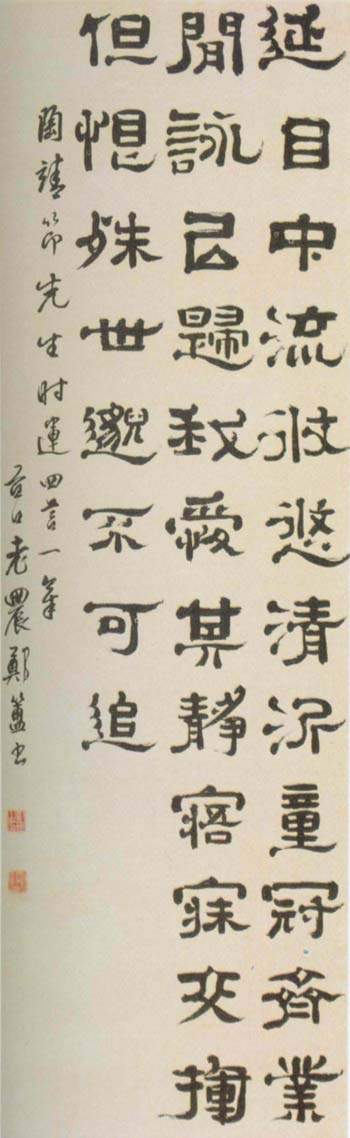 延目中流攸悠清沂童冠齊業
閒詠已歸我愛其靜寤寐交揮
但恨殊世邈不可追
陶靖節先生时運四言一章
谷口老農鄭簠书